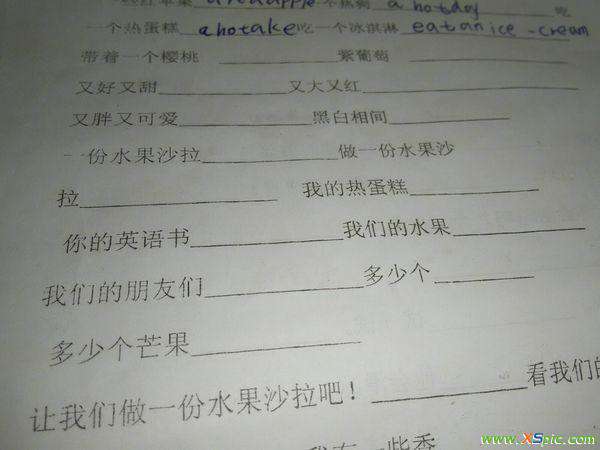 红苹果 a hotdog 吃
一个热蛋糕 a hotake 吃一个冰淇淋 eat an ice-cream
带着一个樱桃 ____________ 紫葡萄 ____________
又好又甜____________又大又红____________
又胖又可爱____________黑白相间____________
一份水果沙拉____________做一份水果沙
拉____________ 我的热蛋糕____________
你的英语书____________我们的水果____________
我们的朋友们____________多少个________
多少个芒果____________
让我们做一份水果沙拉吧！____________看我们的
一些香
www.XSpic.com